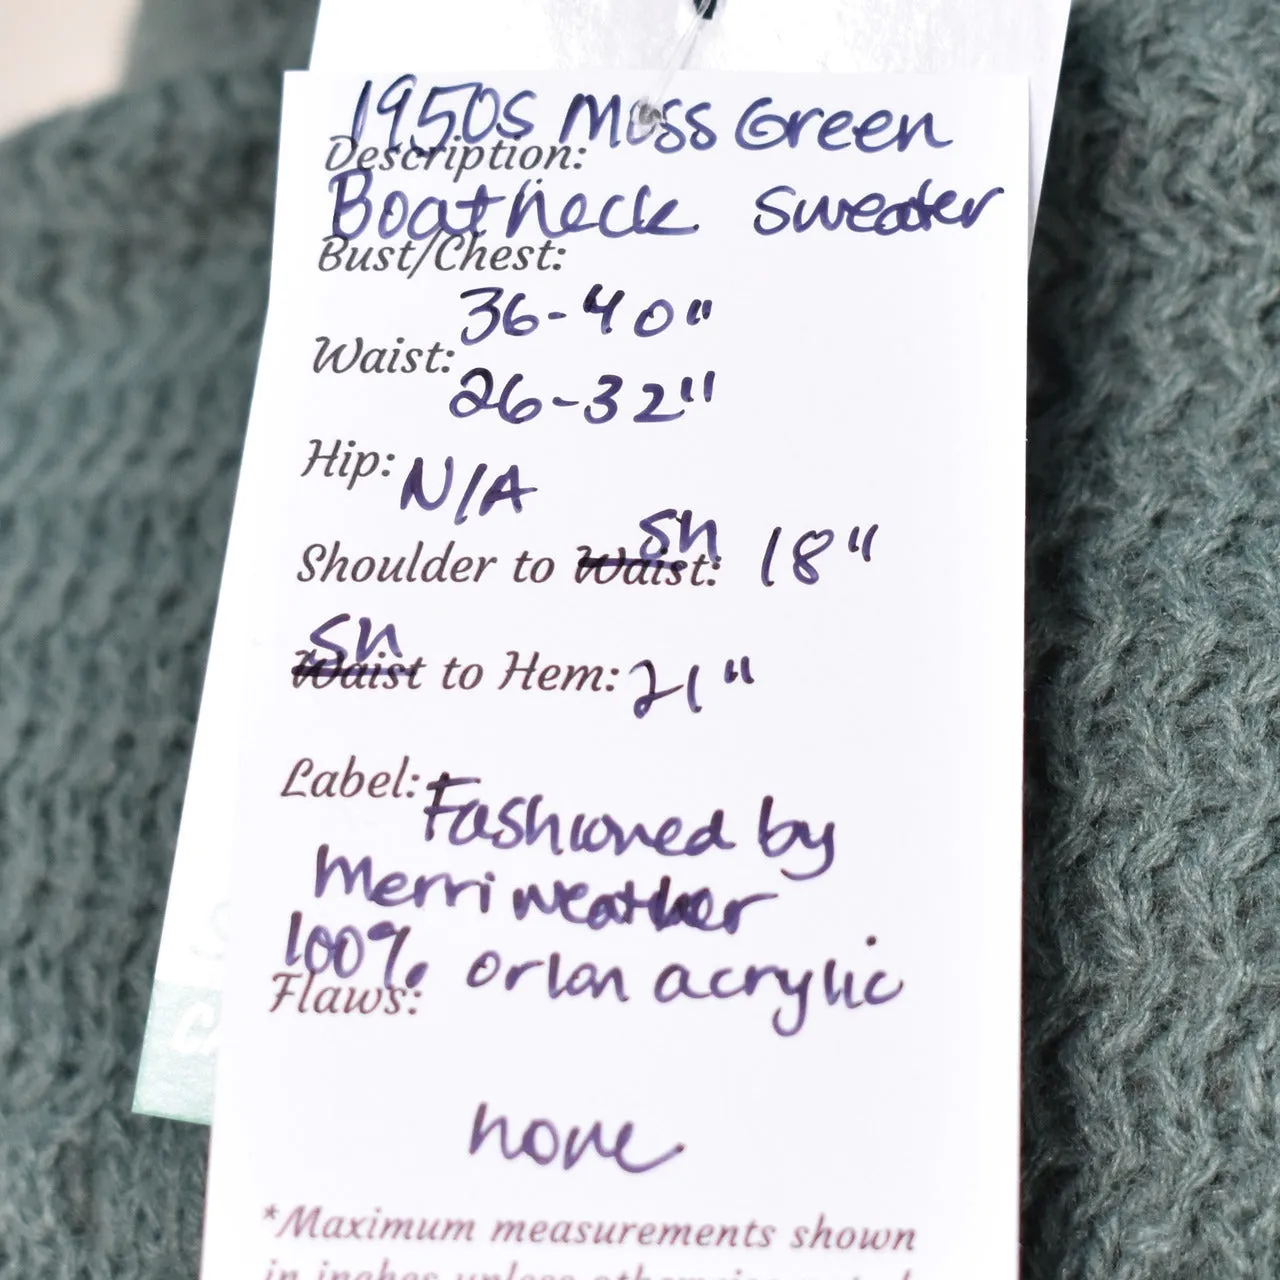 1950s Moss Green
Description:
Boatneck sweater
Bust/Chest:
36-40"
Waist:
26-32"
Hip: N/A
sh
Shoulder to Waist: 18"
sh
Waist to Hem: 21"
Label: Fashioned by
Merriweather
100% orlon acrylic
Flaws:
none
*Maximum measurements shown
in inches unless otherwise noted